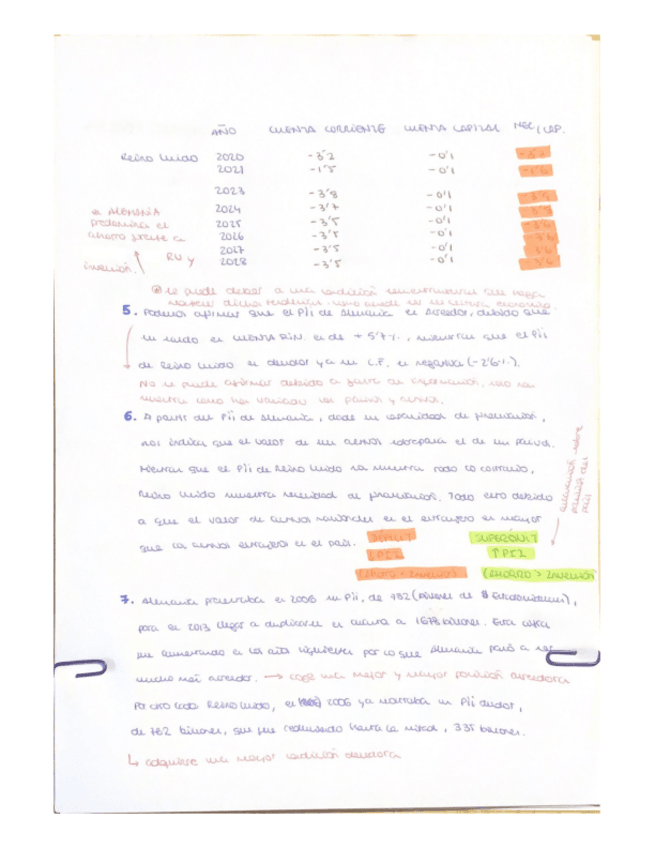 AÑO CUENTA CORRIENTE CUENTA CAPITAL NEC/CAP.
Reino Unido 2020 -3'2 -0'1
2021 -1'5 -0'1 -1'6
2023 -3'8 -0'1
2024 -3'7 -0'1
2025 -3'5 -0'1
2026 -3'5 -0'1
2027 -3'5 -0'1
2028 -3'5 -0'1
ALEMANIA
predomina el
ahorro frente a
RU y
inversión.
se puede deber a una condición que haga
dicha tendencia como puede ser
5. Podemos afirmar que el PII de Alemania es Acreedor, debido que
su saldo en CUENTA FIN. es de + 5'7%, mientras que el PII
de Reino Unido es deudor ya su C.F. es negativa (-2'6%).
No se puede afirmar debido a falta de información, solo se
muestra como han variado los pasivos y activos.
6. A partir del PII de Alemania, dada su capacidad de financiación,
nos indica que el valor de sus activos sobrepasa el de sus pasivos.
Mientras que el PII de Reino Unido nos muestra todo lo contrario,
Reino Unido muestra necesidad de financiación. Todo esto debido
a que el valor de activos nacionales en el extranjero es mayor
que los activos extranjeros en el país.
DÉFICIT
↓PII
(AHORRO < INVERSIÓN)
SUPERÁVIT
↑PII
(AHORRO > INVERSIÓN)
sobre
del
país
7. Alemania presentaba en 2006 su PII, de 782 (billones de $ Estadounidenses),
para en 2013 llegar a duplicarse en cuantía a 1678 billones. Esta cifra
fue aumentando en los años siguientes por lo que Alemania pasó a ser
mucho más acreedor. → coge una mejor y mayor posición acreedora
Por otro lado Reino Unido, en 2006 ya mostraba un PII deudor,
de 762 billones, que fue reduciendo hasta la mitad, 335 billones.
↳ adquiere una mayor condición deudora